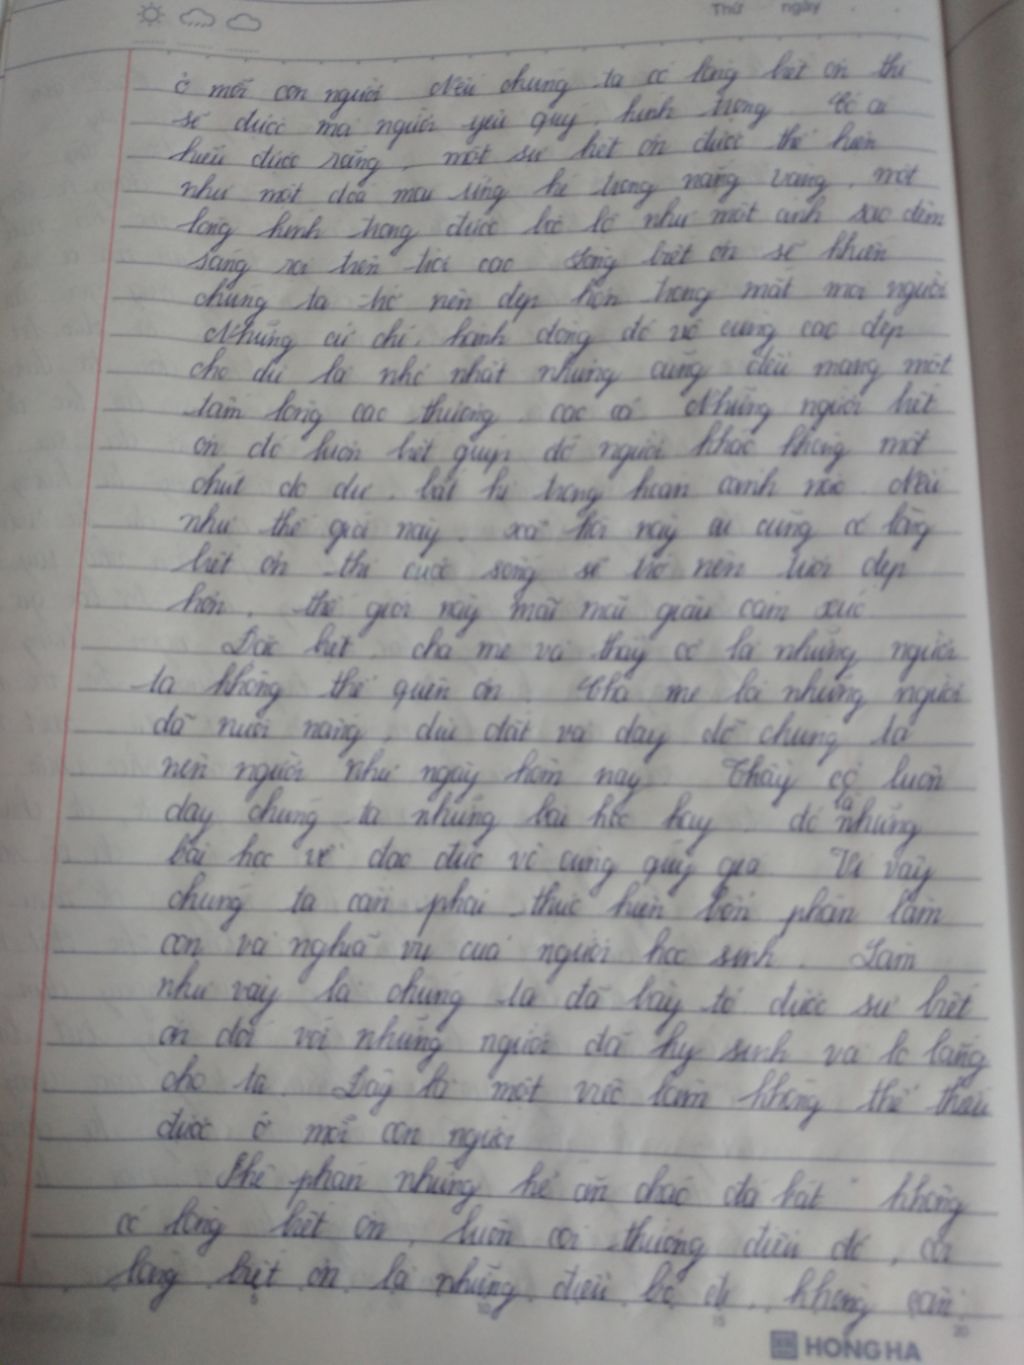 Thứ ngày
ở mỗi con người. Nếu chúng ta có lòng biết ơn thì
sẽ được mọi người yêu quý, kính trọng. Có ai
hiểu được rằng, một sự biết ơn được thể hiện
như một đóa mai ửng hé trong nắng vàng, một
lòng kính trọng được bộc lộ như một ánh sao đêm
sáng rọi trên trời cao. Lòng biết ơn sẽ khiến
chúng ta trở nên đẹp hơn trong mắt mọi người.
Những cử chỉ, hành động đó vô cùng cao đẹp
cho dù là nhỏ nhặt nhưng cũng đều mang một
tấm lòng cao thượng, cao cả. Những người biết
ơn đó luôn biết giúp đỡ người khác không một
chút do dự, bất kì trong hoàn cảnh nào. Nếu
như thế giới này, xã hội này ai cũng có lòng
biết ơn thì cuộc sống sẽ trở nên tươi đẹp
hơn, thế giới này mãi mãi giàu cảm xúc.
Đặc biệt, cha mẹ và thầy cô là những người
ta không thể quên ơn. Cha mẹ là những người
đã nuôi nấng, dìu dắt và dạy dỗ chúng ta
nên người như ngày hôm nay. Thầy cô luôn
dạy chúng ta những bài học hay, đó là những
bài học về đạo đức vô cùng quý giá. Vì vậy
chúng ta cần phải thực hiện bổn phận làm
con và nghĩa vụ của người học sinh. Làm
như vậy là chúng ta đã bày tỏ được sự biết
ơn đối với những người đã hy sinh và lo lắng
cho ta. Đây là một việc làm không thể thiếu
được ở mỗi con người.
Phê phán những kẻ ăn cháo đá bát, không
có lòng biết ơn, luôn coi thường điều đó, coi
lòng biết ơn là những điều bỏ đi, không cần
5 10 15 20
HONG HA